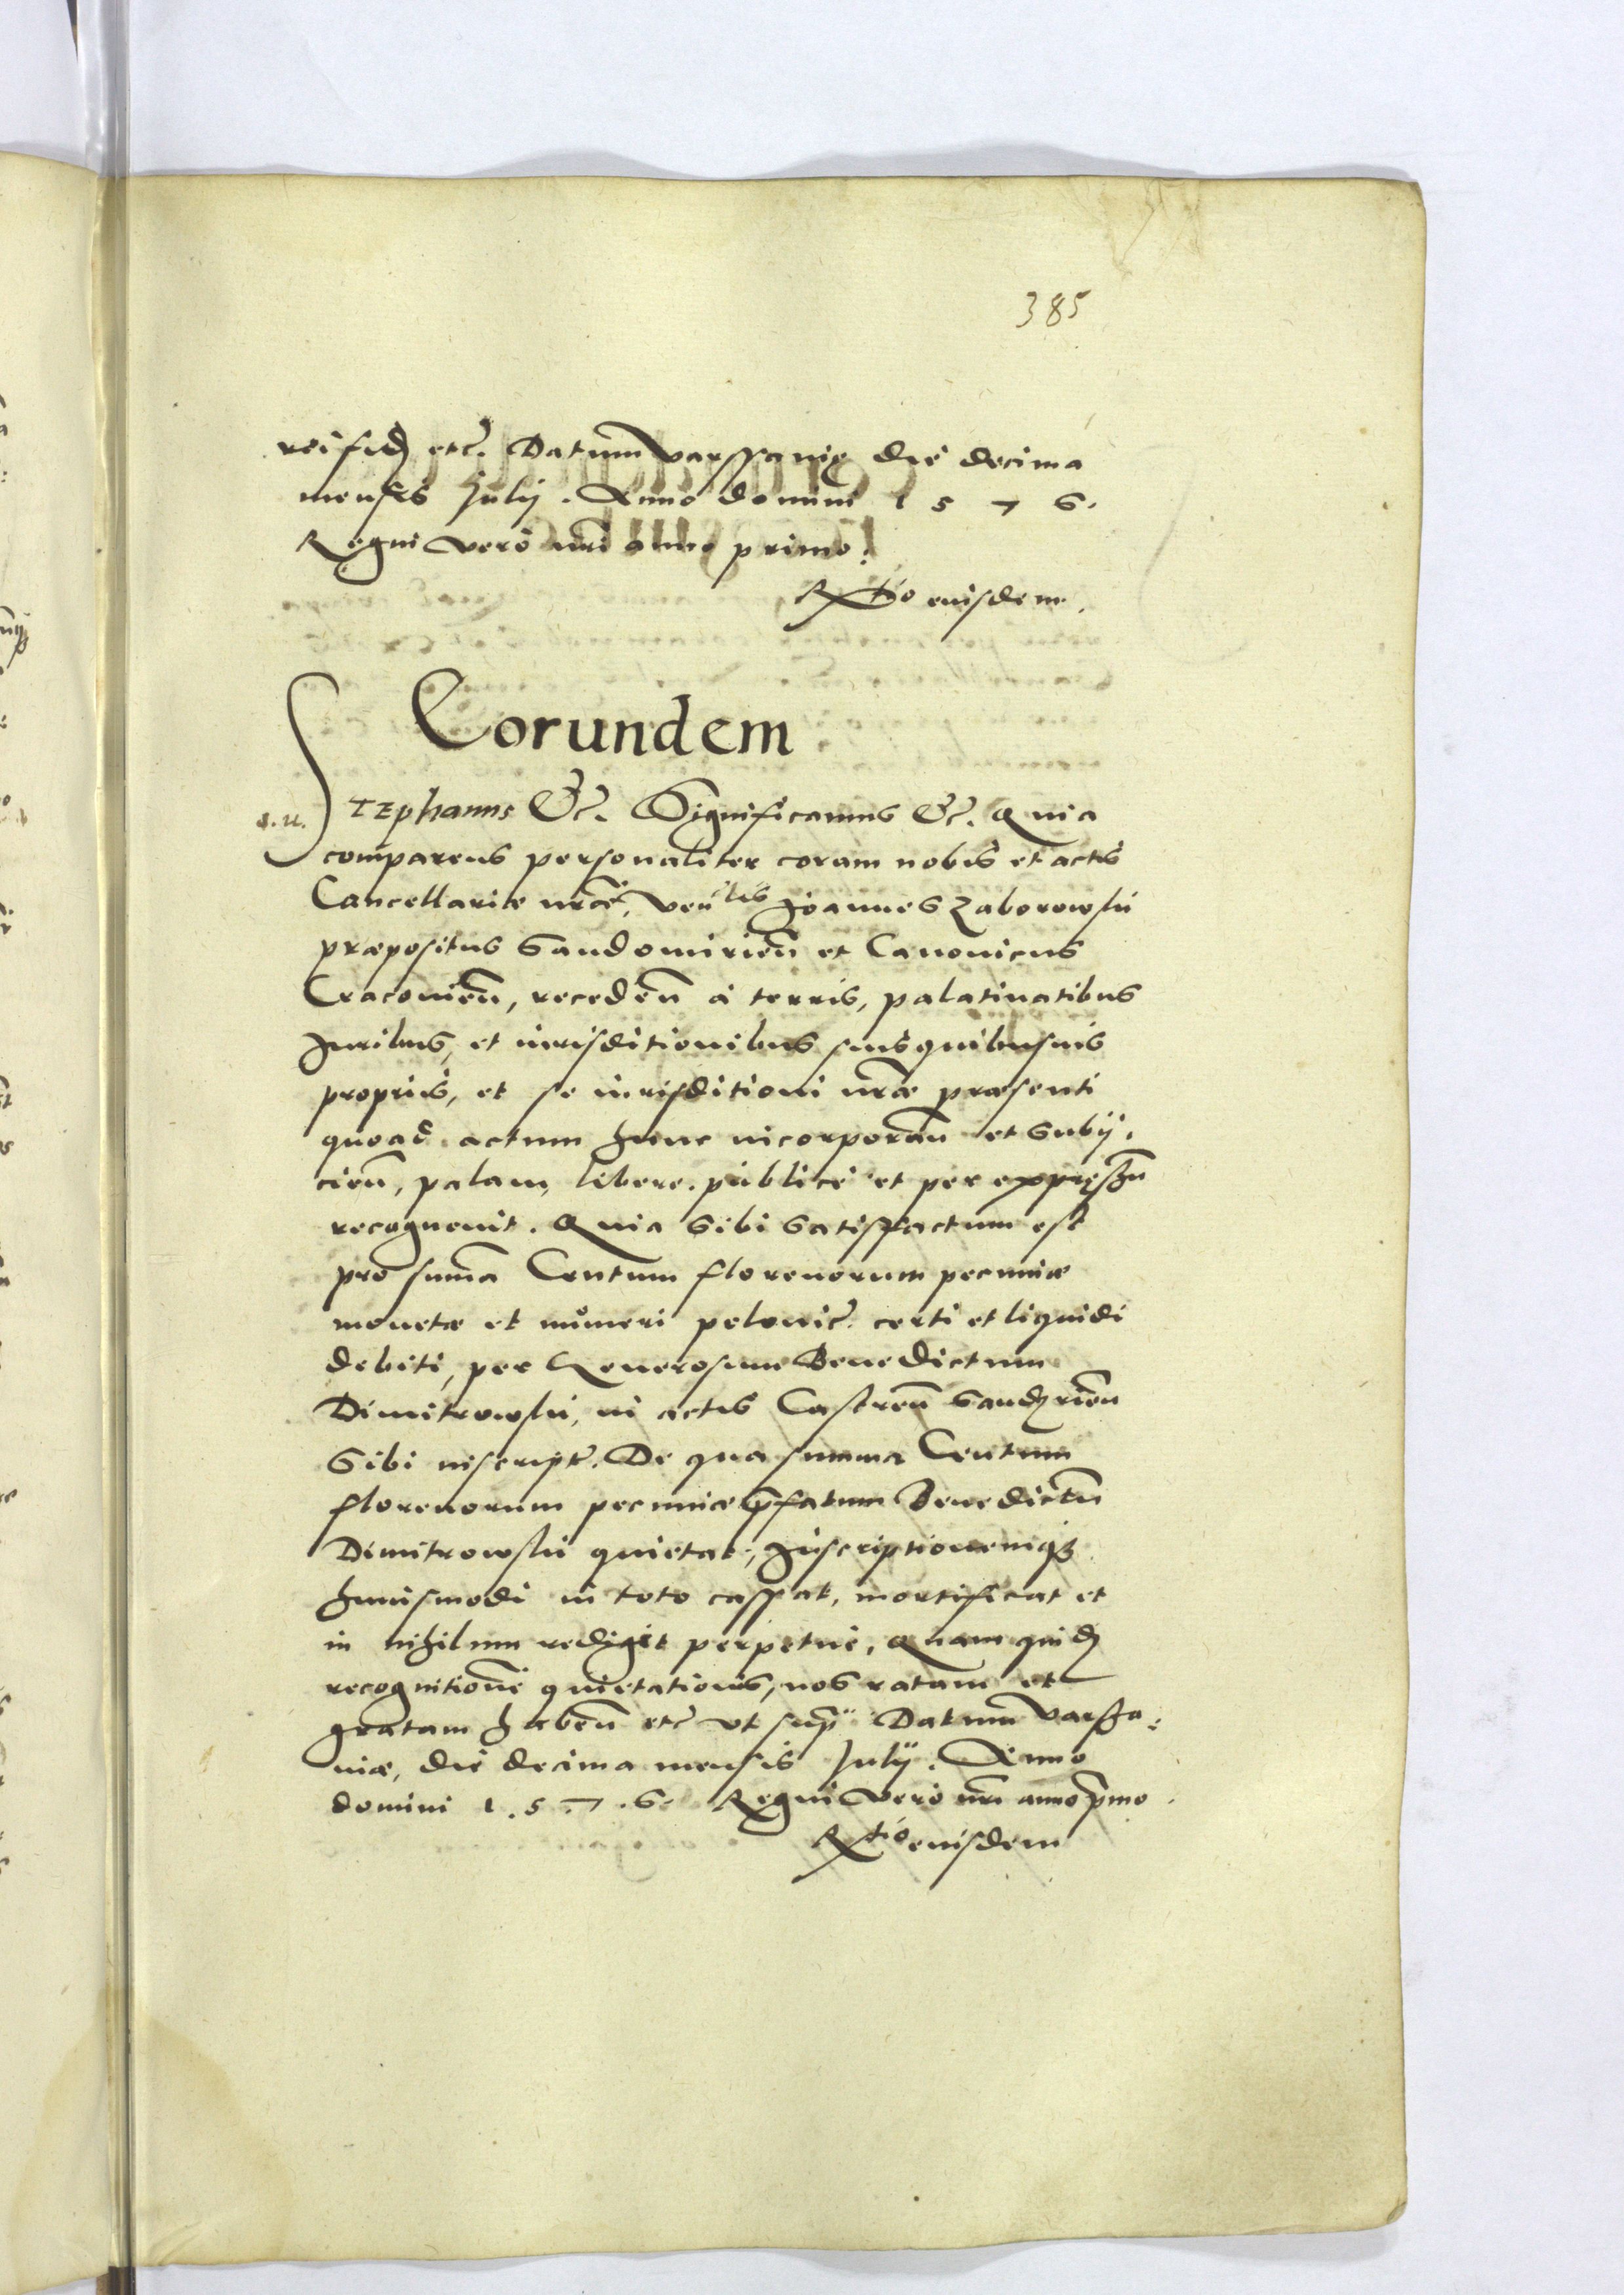 385
rei fid etc. Datum Varssavię die decima
mensis Julij. Anno domini 1576.
Regni vero nri anno primo.
Rtio eiusdem.
Eorundem
Stephanus Etc. Significamus Etc. Quia
comparens personaliter coram nobis et actis
Cancellariæ nræ, Venlis Joannes Zaborowski
præpositus Sandomirien et Canonicus
Cracovien, receden a terris, palatinatibus
Juribus, et iurisditionibus suis quibusvis
proprijs, et se iurisditioni nræ præsenti
quoad actum hunc incorporan et subij.
cien, palam, libere. publice et per expressu
recognovit. Quia sibi satisfactum est
pro summa Centum florenorum pecuniæ
monetæ et numeri polonic. certi et liquidi
debiti, per Generosum Benedictum
Dimitrowski, in actis Castren Sandzrien
sibi inscript. De qua summa Centum
florenorum pecuniæ pfatum Benedictu
Dimitrowski quietat, Inscriptionemqz
huiusmodi in toto cassat, mortificat et
in nihilum redigit perpetue, Quam quid
recognitione quietationis, nos ratam et
gratam haben etc vt sup. Datum Varssa:
uiæ, die decima mensis Julij. Anno
domini 1.5.7.6. Regni vero nri anno pmo.
Rtio eiusdem